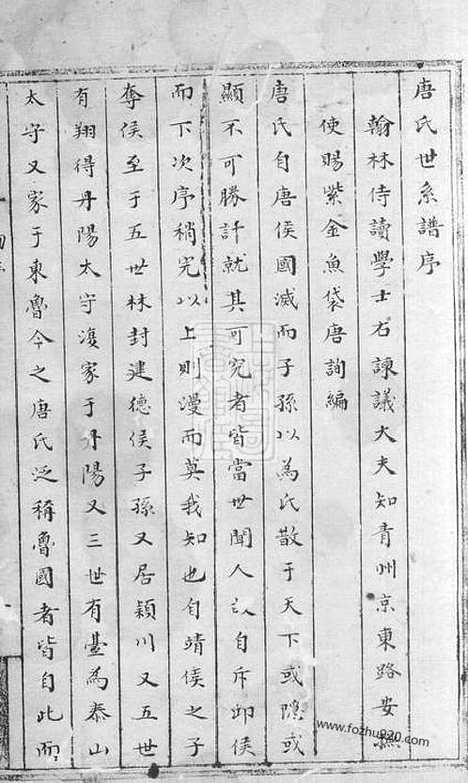 唐氏世系譜序
翰林侍讀學士右諫議大夫知青州京東路安撫
使賜紫金魚袋唐詢編
唐氏自唐侯國滅而子孫以為氏散于天下或隱或
顯不可勝計就其可究者皆當世聞人以自斥卭侯
而下次序稍完以上則漫而莫我知也自靖侯之子
奪侯至于五世林封建德侯子孫又居潁川又五世
有翔得丹陽太守復家于丹陽又三世有臺為泰山
太守又家于東魯今之唐氏泛稱魯國者皆自此而
www.fozhu920.com